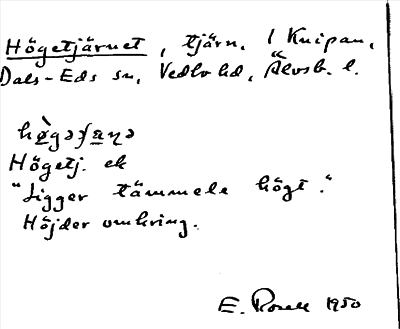 Högetjärnet, tjärn. 1 Knipan,
Dals-Eds sn, Vedbo hd, Älvsb. l.
Högetj. ek
"Ligger tämmele högt."
Höjder omkring.
E. Rosell 1950